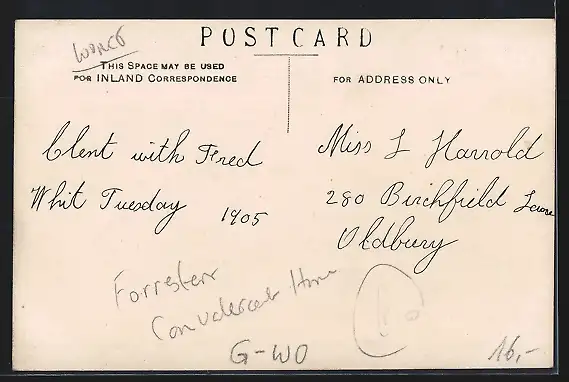 WORCE
POST CARD
THIS SPACE MAY BE USED
FOR INLAND CORRESPONDENCE
FOR ADDRESS ONLY
Clent with Fred
Whit Tuesday 1905
Miss L Harrold
280 Birchfield Lane
Oldbury
Forresters
Convalescent Home
G-WO
16,-